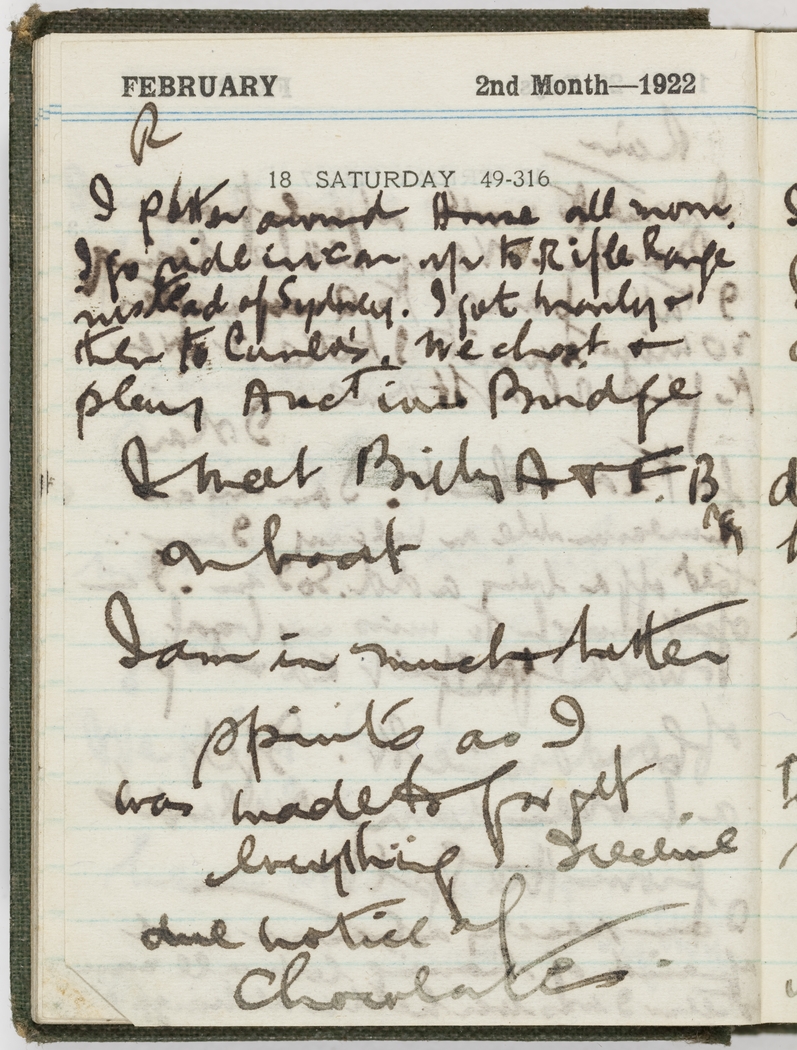 FEBRUARY 2nd Month—1922
R
18 SATURDAY 49-316
I potter around House all morn.
I go ride in car up to Rifle Range
instead of Sydney. I go to Manly &
then to . We chat &
play Auction Bridge
I meet Billy A & F. B
on boat
I am in much better
spirits as I
was made to forget
everything. Receive
due notice of
Chocolates